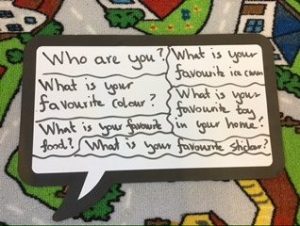 Who are you?
What is your
favourite colour?
What is your favourite
food?
What is your
favourite ice cream
What is your
favourite toy
in your home?
What is your favourite sticker?